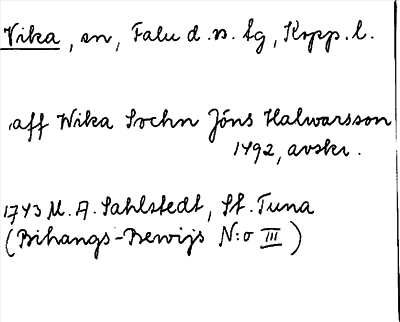 Vika, sn, Falu d.s. tg, Kopp.l.
aff Wika Sochn Jöns Halwarsson
1492, avskr.
1743 M. A. Sahlstedt, St. Tuna
(Bihangs-Bewijs N:o III)